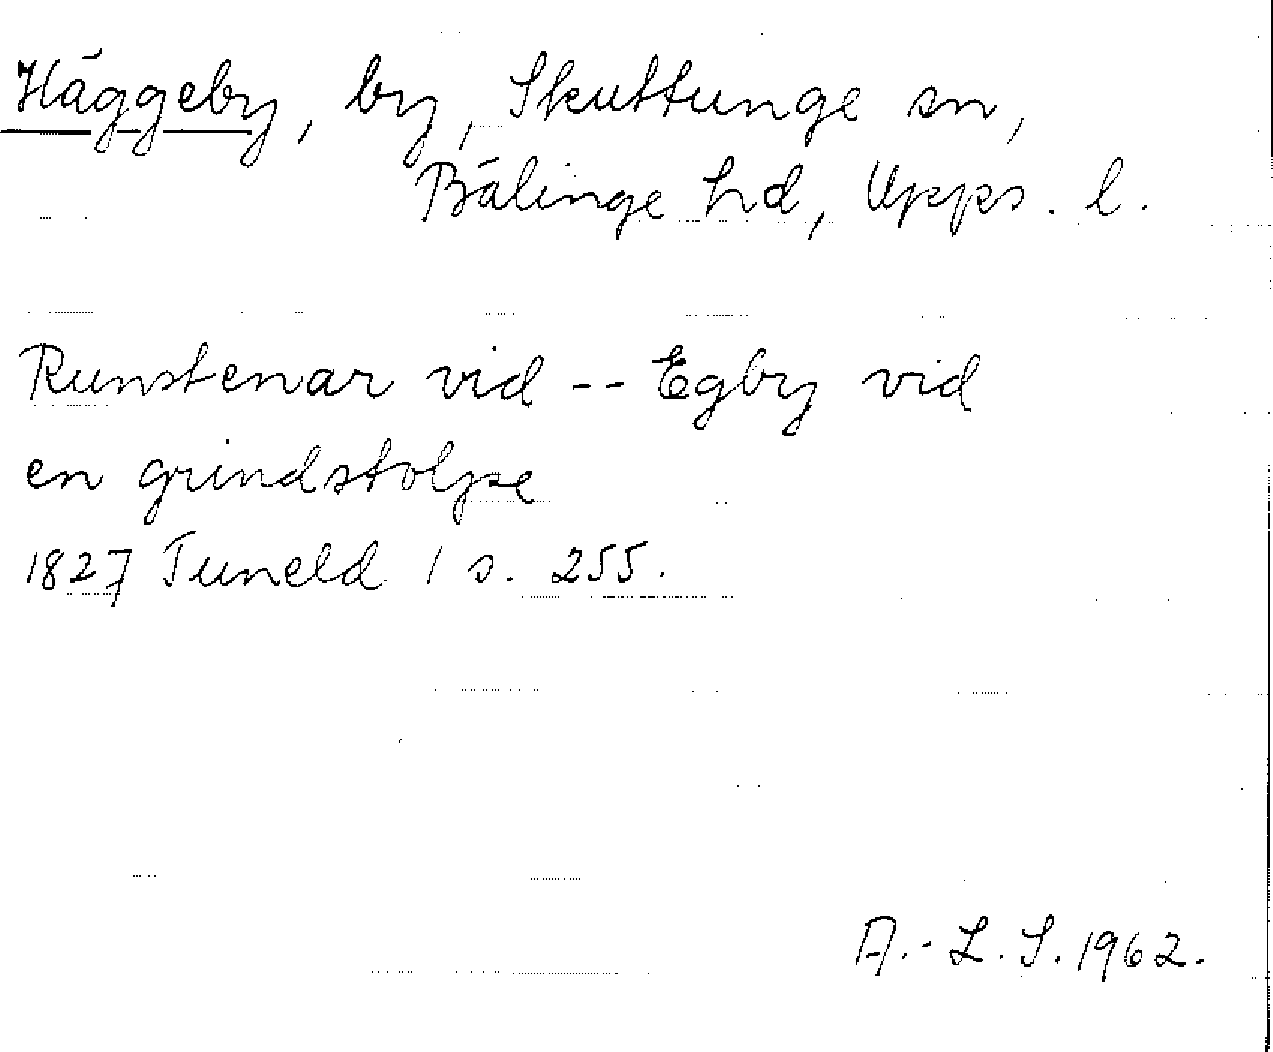 Häggeby, by, Skuttunge sn,
Bälinge hd, Upps. l.
Runstenar vid -- Egby vid
en grindstolpe
1827 Tuneld 1 s. 255.
A.-L. S. 1962.